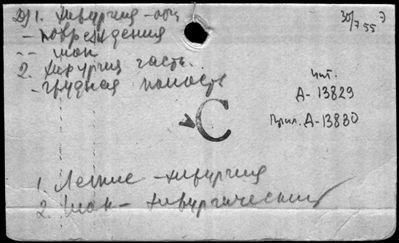 1. Хирургия - общ
- повреждения
-- шок
2. Хирургия част.
- грудная полость
30/7 55
Чит.
А-13829
Прил. А-13830
С
1. Легкие - хирургия
2. Шок - хирургический